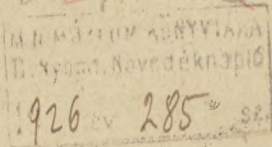 M. N. MÚZEUM KÖNYVTÁRA
Nyomt. Növedéknapló
1926 év 285 sz.